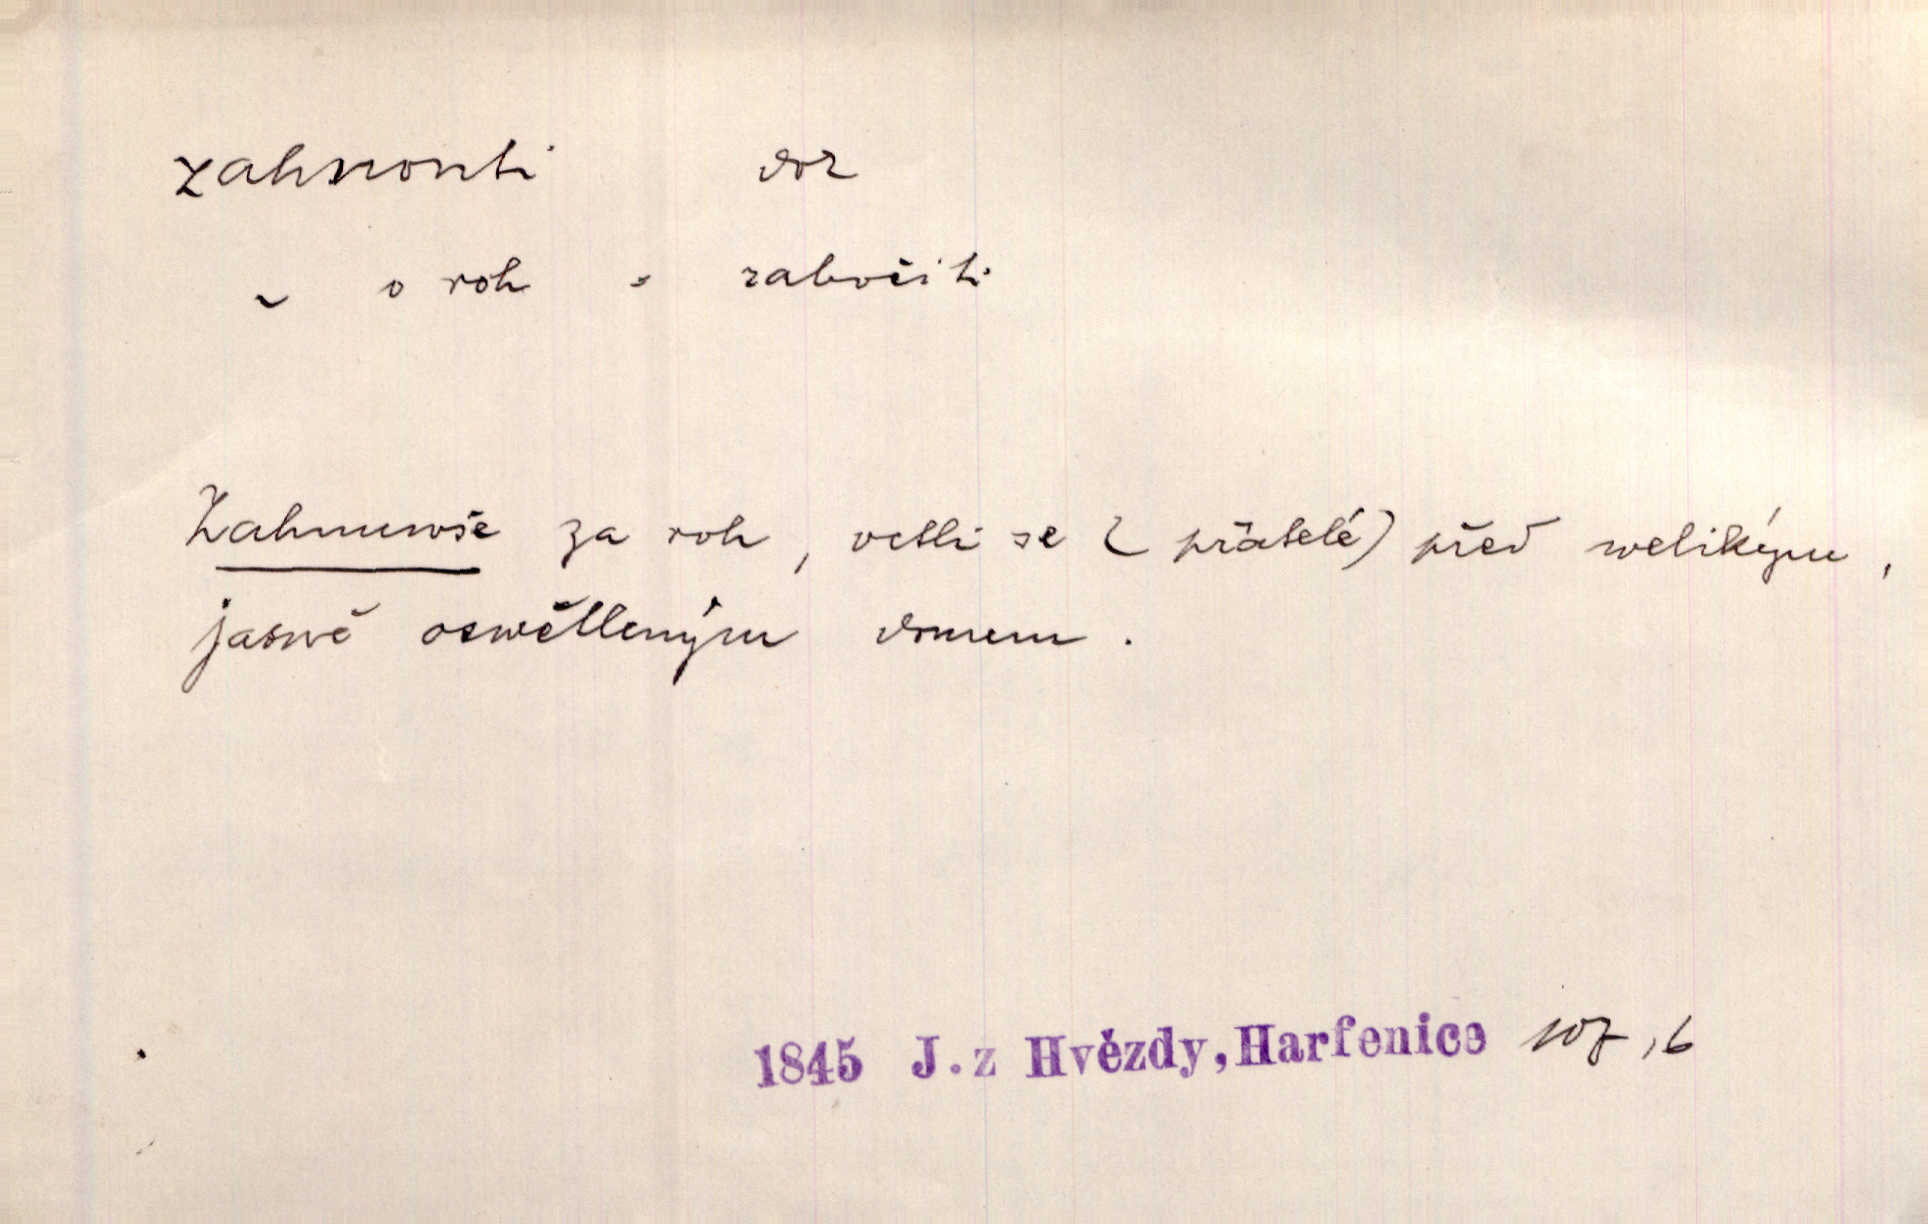 zahnouti dok
~ o roh = zabočiti
Zahnuwše za roh, octli se (přátelé) před welikým,
jasně oswětleným domem.
1845 J. z Hvězdy, Harfenice 107,6